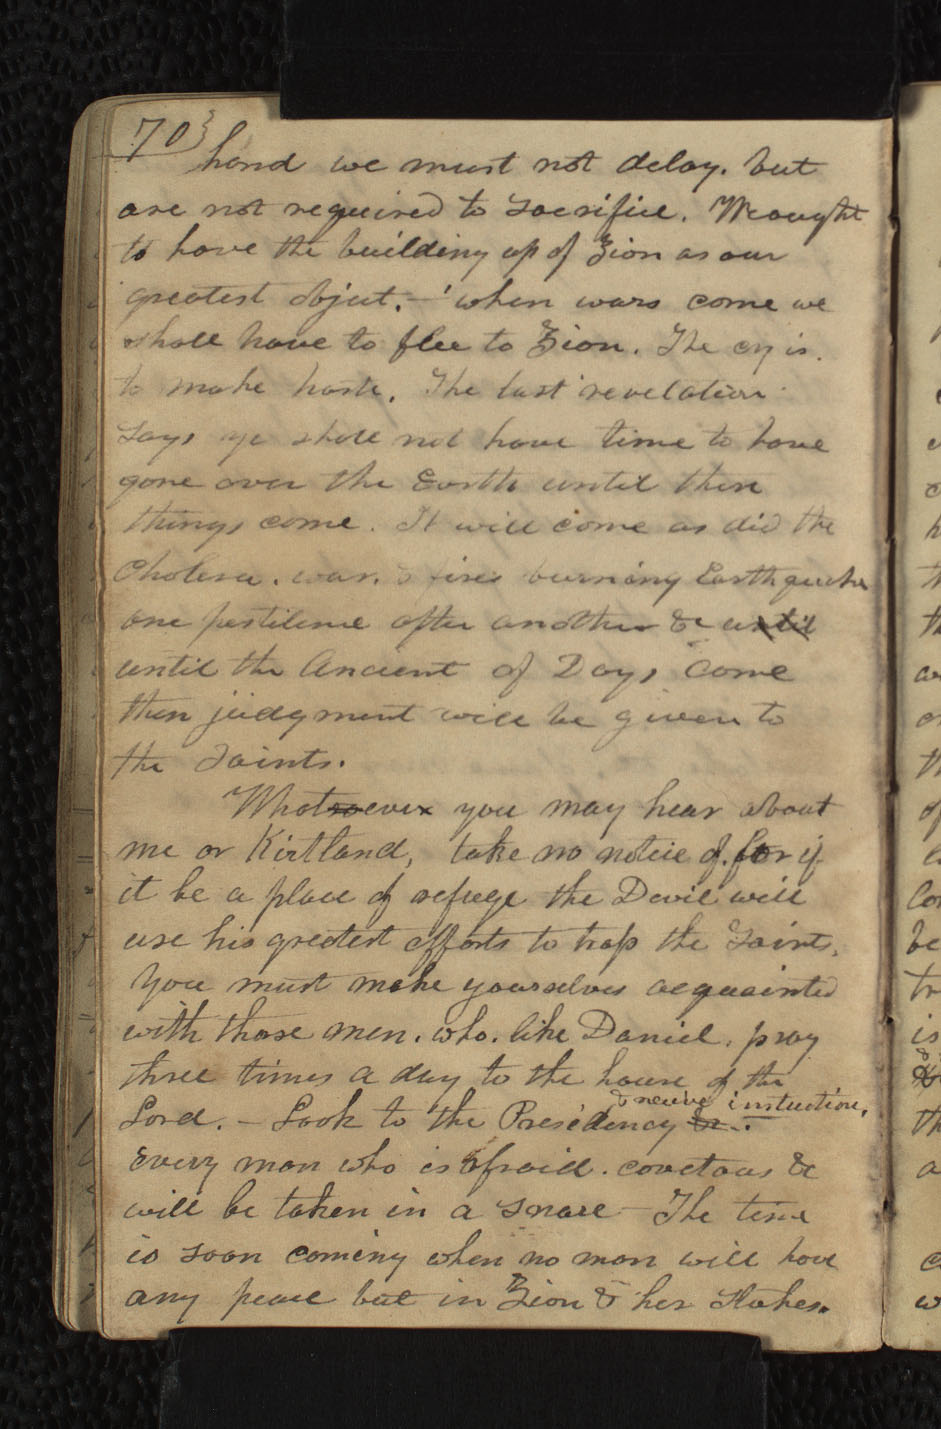 70}
hand we must not delay. but
are not required to sacrifice. We ought
to have the building up of Zion as our
greatest object. — when wars come we
shall have to flee to Zion. The cry is.
to make haste. The last revelation
says ye shall not have time to have
gone over the Earth until these
things come. It will come as did the
cholera. war. & fires burning Earthquake
one pestilence after another & until
until the Ancient of Days come
then judgment will be given to
the Saints.
Whatsoever you may hear about
me or Kirtland, take no notice of. for if
it be a place of refuge the Devil will
use his greatest efforts to trap the Saints.
You must make yourselves acquainted
with those men. who. like Daniel. pray
three times a day to the house of the
Lord. — Look to the Presidency & receive instuction.
Every man who is afraid. covetous &
will be taken in a snare — The time
is soon coming when no man will have
any peace but in Zion & her Stakes.